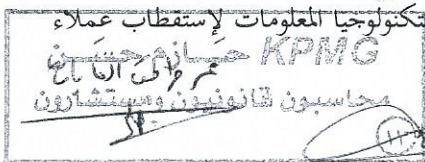 تكنولوجيا المعلومات لإستقطاب عملاء
KPMG حازم حسن
محاسبون قانونيون ومستشارون